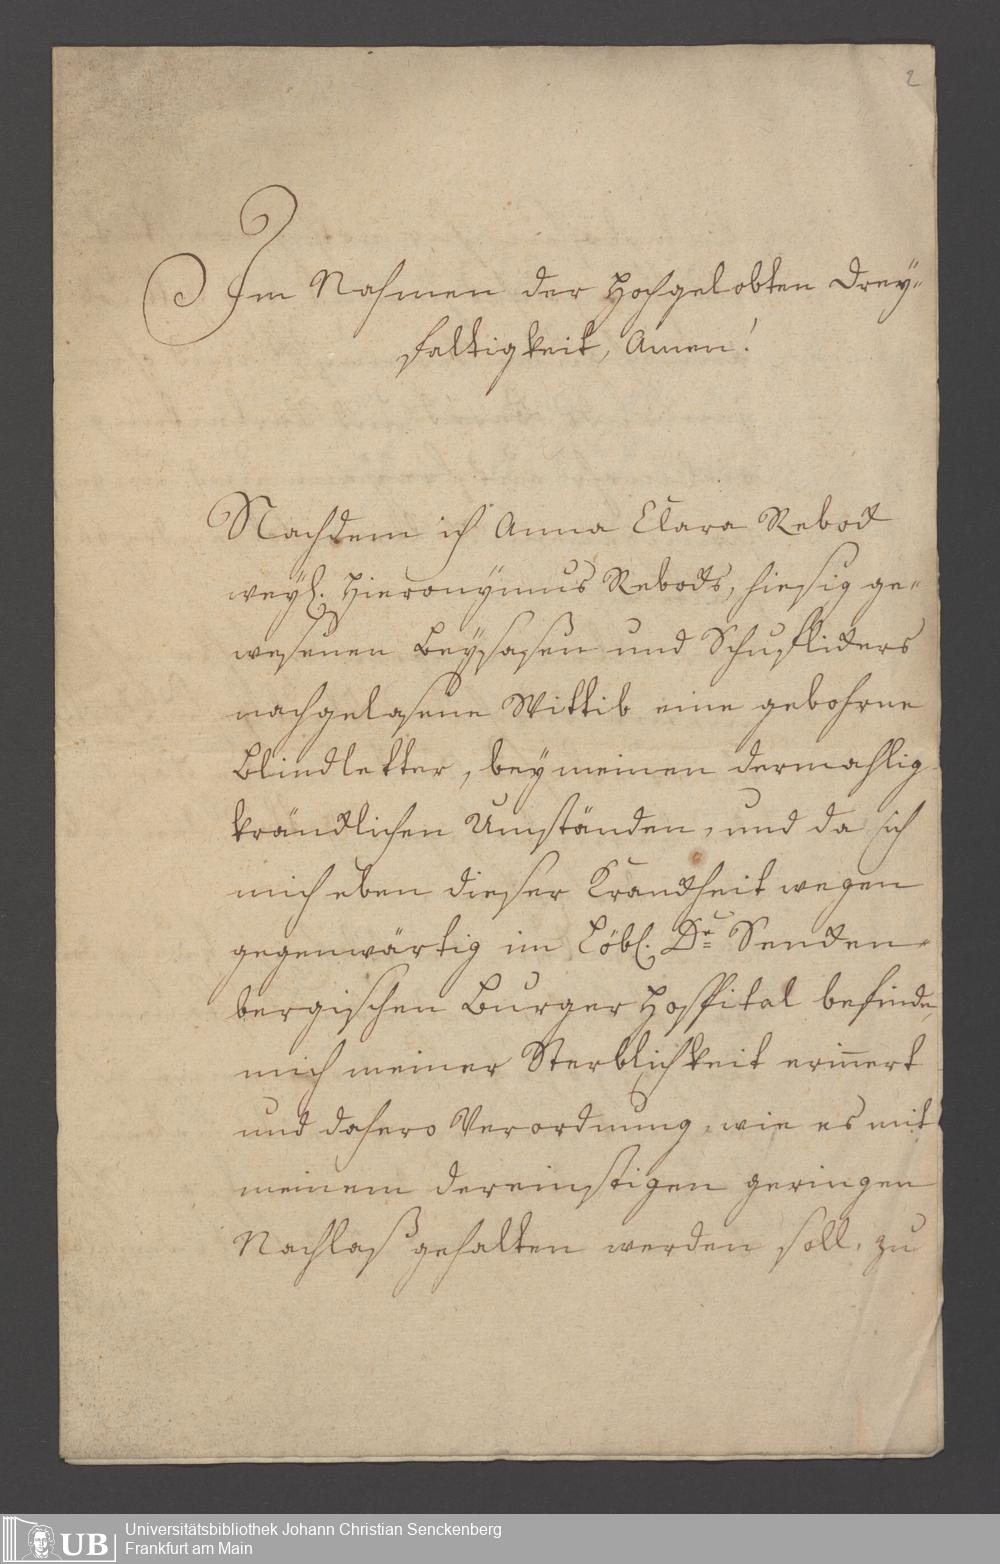 2
Im Nahmen der Hochgelobten Drey=
faltigkeit, Amen!
Nachdem ich Anna Clara Rebock
weyl. Hieronymus Rebocks, hiesig ge=
wesenen Beysasen und Schuhflickers
nachgelasene Wittib eine gebohrne
Blindletter, bey meinen dermahlig
kräncklichen Umständen, und da ich
mich eben dieser Kranckheit wegen
gegenwärtig im Löbl. Dr. Sencken=
bergischen Burger Hospital befinde,
mich meiner Sterblichkeit erinnert
und dahero Verordnung, wie es mit
meinem dereinstigen geringen
Nachlaß gehalten werden soll, zu
UB
Universitätsbibliothek Johann Christian Senckenberg
Frankfurt am Main